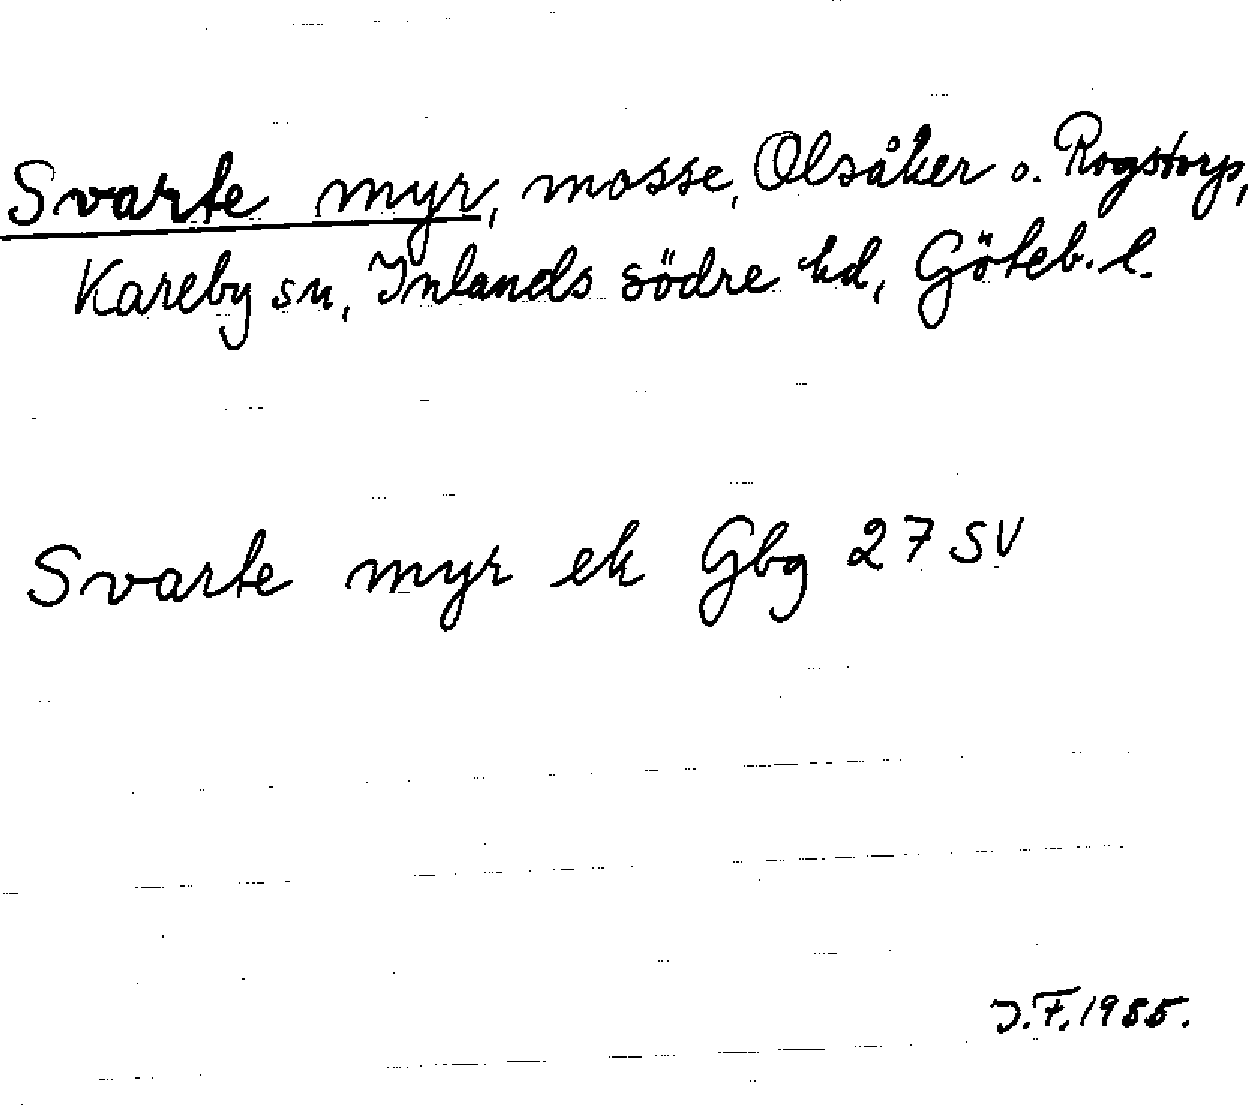 Svarte myr, mosse, Olsåker o. Rogstorp,
Kareby sn, Inlands södre hd, Göteb. l.
Svarte myr ek Gbg 27 SV
J.F. 1985.